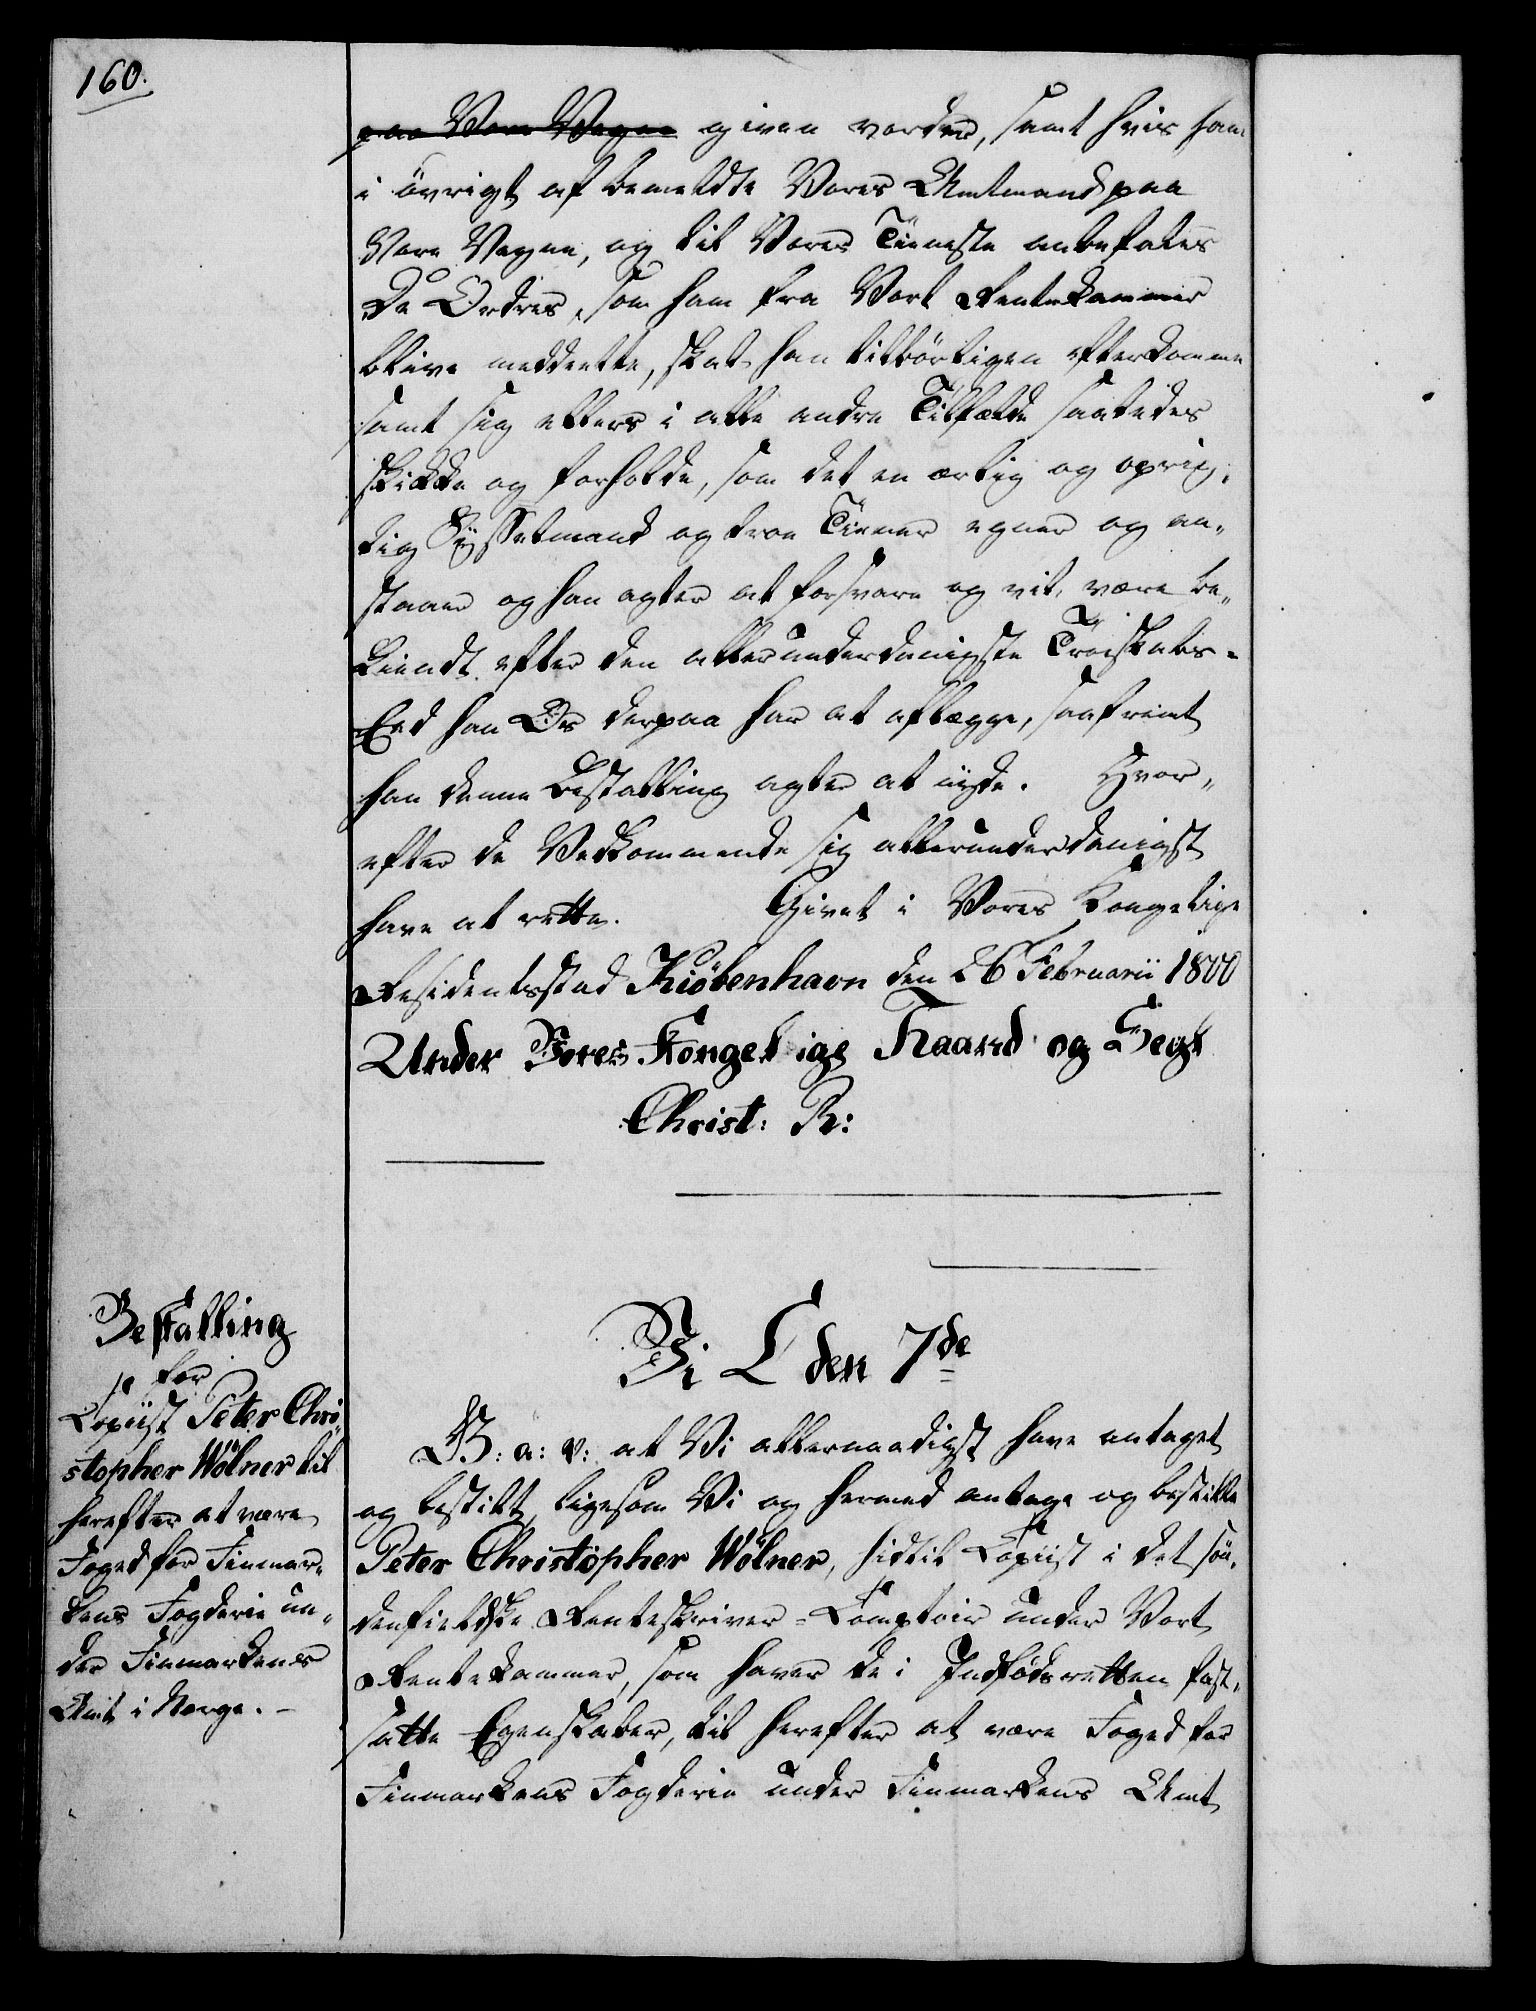 160.
paa Vore Vegne given vorder, samt hvis ham
i övrigt af bemeldte Vores Amtmand paa
Vore Vegne, og til Vores Tieneste anbefales
De Ordres, som ham fra Vort Rentekammer
blive meddeelte, skal han tilbörligen efterkomme
samt sig ellers i alle andre Tilfælde saaledes
skikke og forholde, som det en ærlig og oprig,
tig Sysselmand og troe Tiener egner og an„
staaer og han agter at forsvare og vil være be„
kiendt efter den allerunderdanigste Troeskabs-
Eed han Os derpaa har at aflægge, saafremt
han denne Bestalling agter at nyde. Hvor„
efter de Vedkommende sig allerunderdanigst
have at rette. Givet i Vores Kongelige
Residentsstad Kiöbenhavn den 26 Februarii 1800
Under Vores Kongelige Haand og Segl
Christ: R:
Bestalling
for
Copiist Peter Chri„
stopher Wölner til
herefter at være
Foged for Finmar„
kens Fogderie un„
der Finmarkens
Amt i Norge. -
Vi C den 7de
G: a: v: at Vi allernaadigst have antaget
og bestilt, ligesom Vi og hermed antage og bestille
Peter Christopher Wölner, hidtil Copiist i det sön„
denfieldske Renteskriver-Comptoir under Vort
Rentekammer, som haver de i Indfödsretten fast„
satte Egenskaber, til herefter at være Foged for
Finmarkens Fogderie under Finmarkens Amt